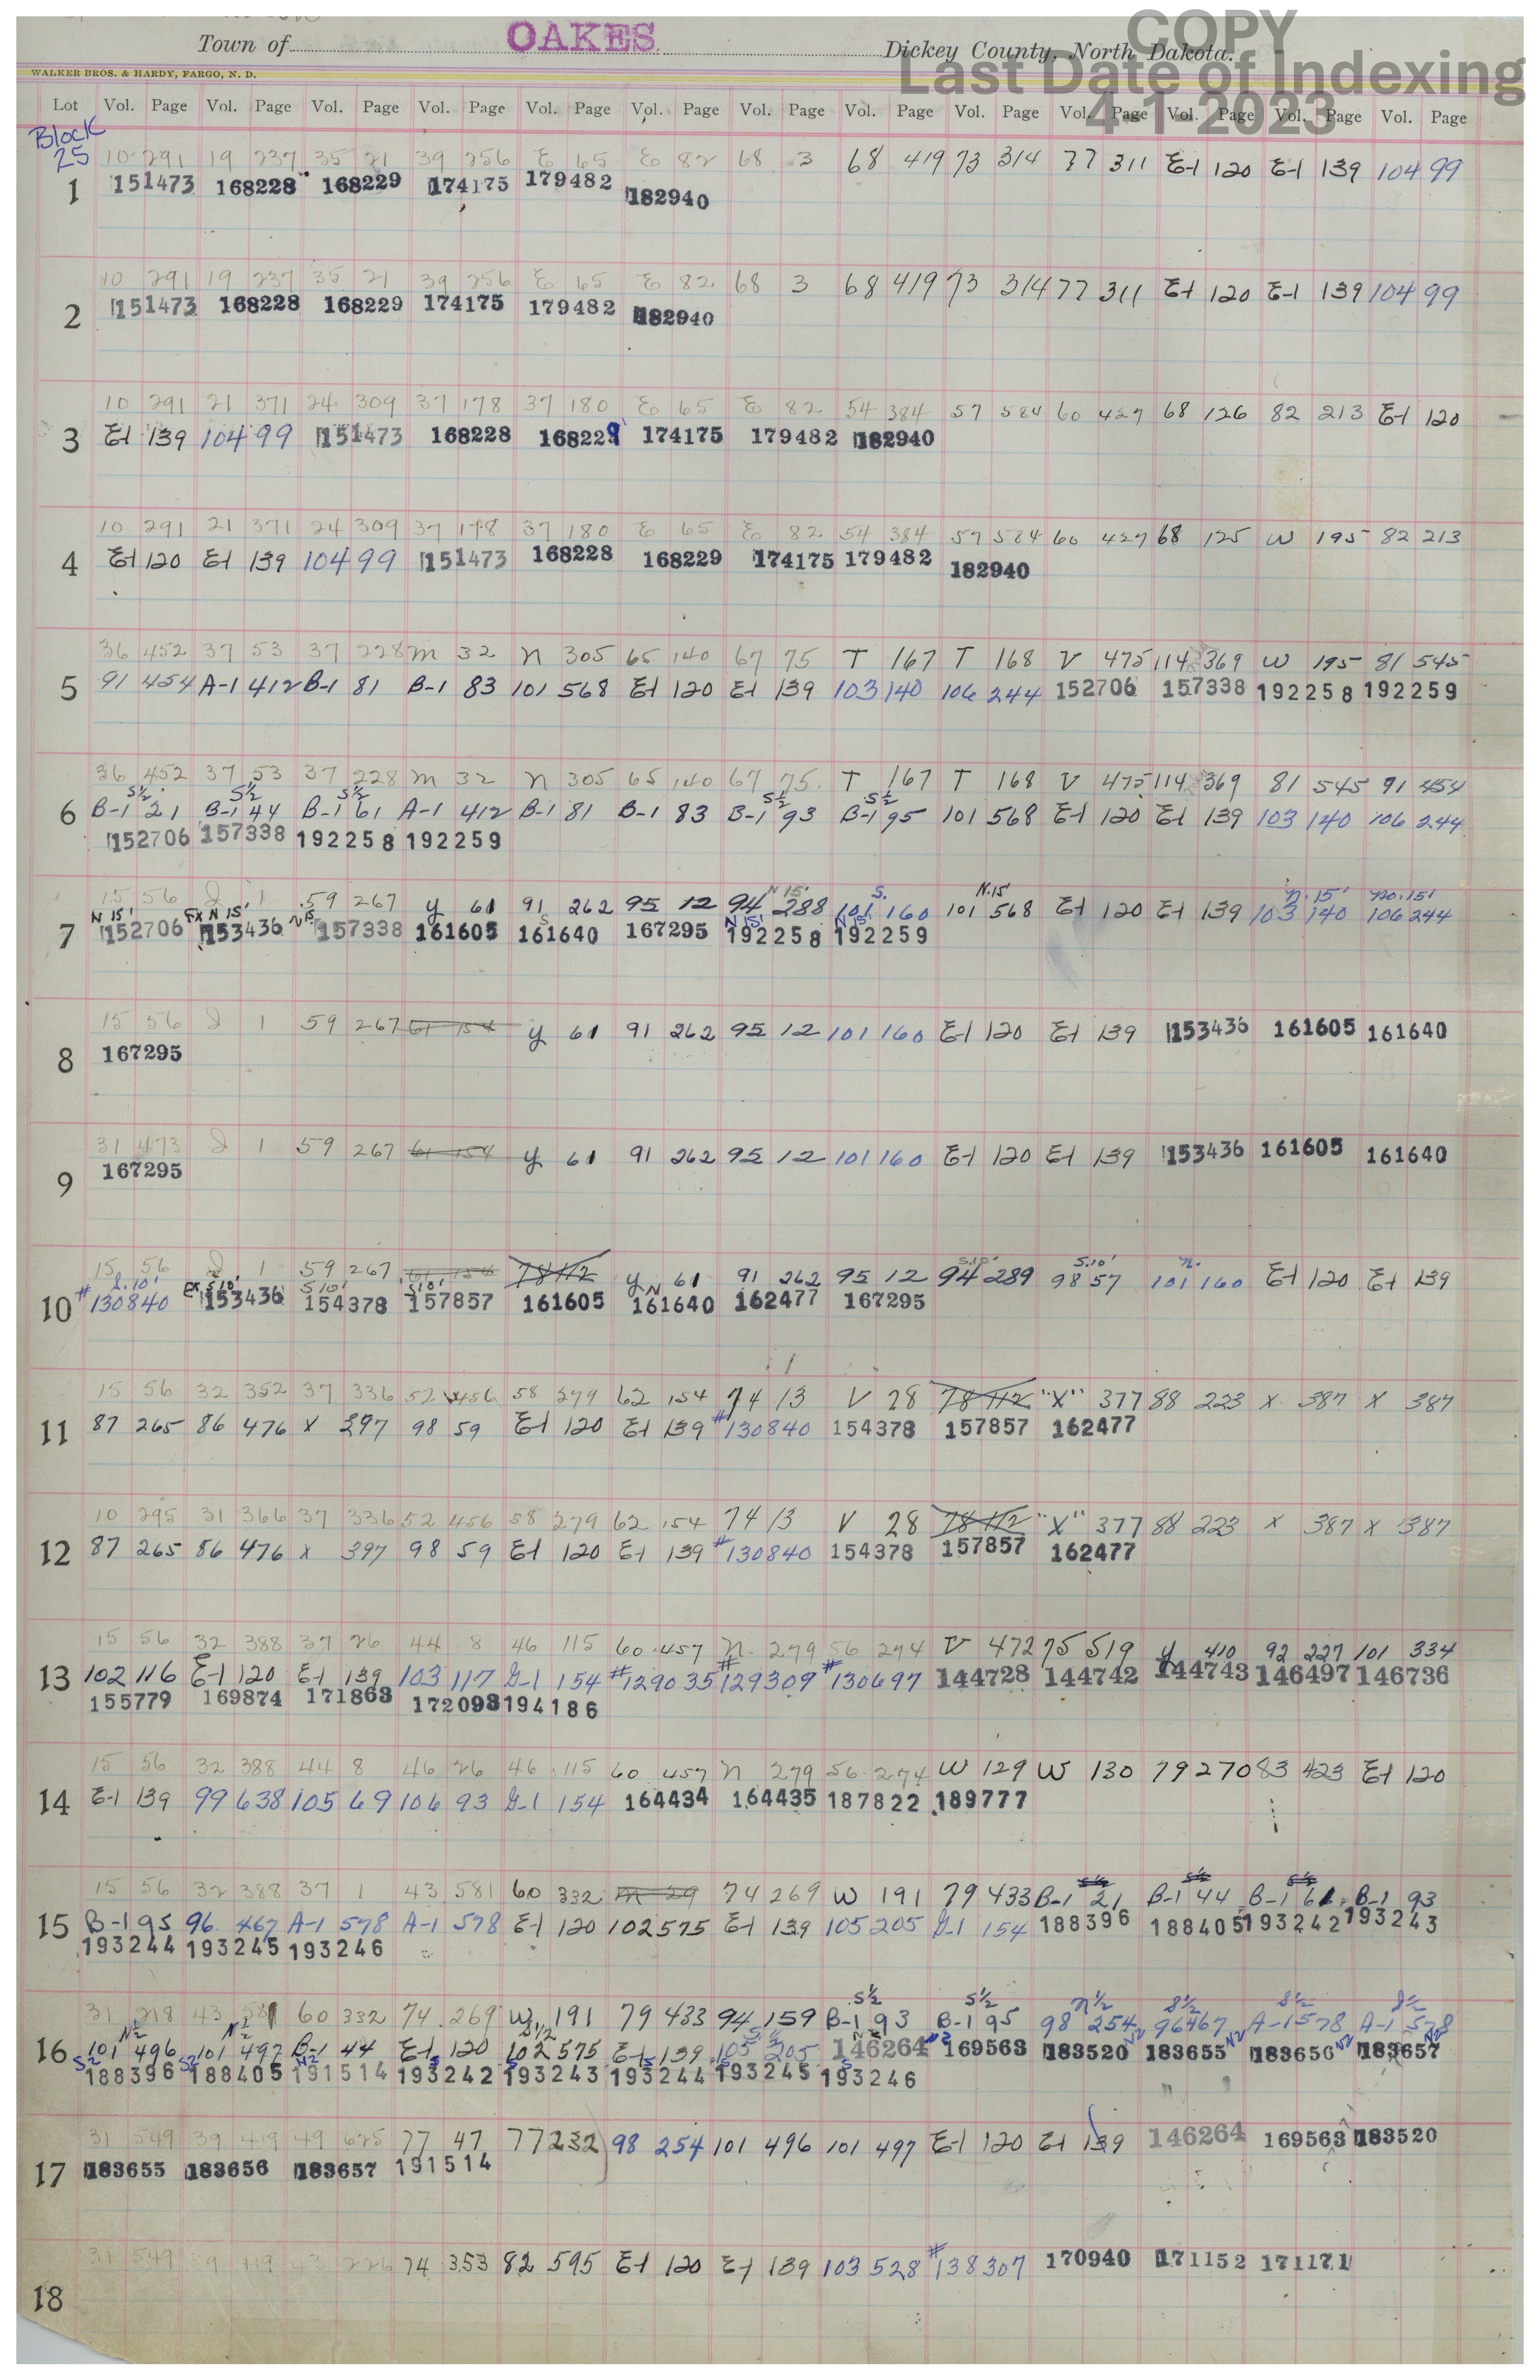 COPY
Town of OAKES Dickey County, North Dakota.
Last Date of Indexing
4-1-2023
WALKER BROS. & HARDY, FARGO, N. D.
Lot Vol. Page Vol. Page Vol. Page Vol. Page Vol. Page Vol. Page Vol. Page Vol. Page Vol. Page Vol. Page Vol. Page Vol. Page Vol. Page
Block
25 10 291 19 237 35 21 39 256 E 65 E 82 68 3 68 419 73 314 77 311 E-1 120 E-1 139 104 99
1 151473 168228 168229 174175 179482 182940
10 291 19 237 35 21 39 256 E 65 E 82 68 3 68 419 73 314 77 311 E-1 120 E-1 139 104 99
2 151473 168228 168229 174175 179482 182940
10 291 21 371 24 309 37 178 37 180 E 65 E 82 54 384 57 584 60 427 68 126 82 213 E-1 120
3 E-1 139 104 99 151473 168228 168229 174175 179482 182940
10 291 21 371 24 309 37 178 37 180 E 65 E 82 54 384 57 584 60 427 68 125 W 195 82 213
4 E-1 120 E-1 139 104 99 151473 168228 168229 174175 179482 182940
36 452 37 53 37 228 M 32 N 305 65 140 67 75 T 167 T 168 V 475 114 369 W 195 81 545
5 91 454 A-1 412 B-1 81 B-1 83 101 568 E-1 120 E-1 139 103 140 106 244 152706 157338 192258 192259
36 452 37 53 37 228 M 32 N 305 65 140 67 75 T 167 T 168 V 475 114 369 81 545 91 454
S½ S½ S½ S½ S½
6 B-1 21 B-1 44 B-1 61 A-1 412 B-1 81 B-1 83 B-1 93 B-1 95 101 568 E-1 120 E-1 139 103 140 106 244
152706 157338 192258 192259
N 15' S. N.15' N. 15' No. 15'
15 56 J 1 59 267 y 61 91 262 95 12 94 288 101 160 101 568 E-1 120 E-1 139 103 140 106 244
N 15' EX N 15' N 15 S N 15' N 15'
7 152706 153436 157338 161605 161640 167295 192258 192259
15 56 J 1 59 267 61 154 y 61 91 262 95 12 101 160 E-1 120 E-1 139 153436 161605 161640
8 167295
31 473 J 1 59 267 61 154 y 61 91 262 95 12 101 160 E-1 120 E-1 139 153436 161605 161640
9 167295
S.15' S.10' N.
15 56 J 1 59 267 61 154 78 112 y 61 91 262 95 12 94 289 98 57 101 160 E-1 120 E-1 139
S.10' EX S 10' S 10' S 10' N
10 #130840 153436 154378 157857 161605 161640 162477 167295
15 56 32 352 37 336 52 456 58 279 62 154 74 13 V 28 78 112 "X" 377 88 223 X 387 X 387
11 87 265 86 476 X 397 98 59 E-1 120 E-1 139 #130840 154378 157857 162477
10 295 31 366 37 336 52 456 58 279 62 154 74 13 V 28 78 112 "X" 377 88 223 X 387 X 387
12 87 265 86 476 X 397 98 59 E-1 120 E-1 139 #130840 154378 157857 162477
15 56 32 388 37 26 44 8 46 115 60 457 N 279 56 274 V 472 75 519 y 410 92 227 101 334
13 102 116 E-1 120 E-1 139 103 117 G-1 154 #129035 #129309 #130697 144728 144742 144743 146497 146736
155779 169874 171863 172093 194186
15 56 32 388 44 8 46 26 46 115 60 457 N 279 56 274 W 129 W 130 79 270 83 423 E-1 120
14 E-1 139 99 638 105 69 106 93 G-1 154 164434 164435 187822 189777
S½ S½ S½
15 56 32 388 37 1 43 581 60 332 M 29 74 269 W 191 79 433 B-1 21 B-1 44 B-1 61 B-1 93
15 B-1 95 96 467 A-1 578 A-1 578 E-1 120 102 575 E-1 139 105 205 G-1 154 188396 188405 193242 193243
193244 193245 193246
S½ S½ N½ S½ S½ S½
31 218 43 581 60 332 74 269 W 191 79 433 94 159 B-1 93 B-1 95 98 254 96 467 A-1 578 A-1 578
N½ N½ S½ S½ N2 N2 N2 N2
16 101 496 101 497 B-1 44 E-1 120 102 575 E-1 139 105 205 146264 169563 183520 183655 183656 183657
S2 S2 N2 S S S S S
188396 188405 191514 193242 193243 193244 193245 193246
31 549 39 419 49 625 77 47 77 232 98 254 101 496 101 497 E-1 120 E-1 139 146264 169563 183520
17 183655 183656 183657 191514
31 549 74 353 82 595 E-1 120 E-1 139 103 528 #138307 170940 171152 171171
18